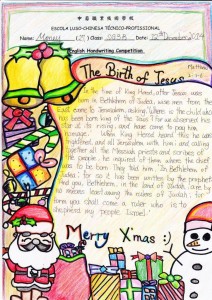 中葡職業技術學校
ESCOLA LUSO-CHINESA TÉCNICO-PROFISSIONAL
Name: (27) Class: Date: 22nd December 2014
English Handwriting Competition
The Birth of Jesus
Matthew
In the time of King Herod, after Jesus was
born in Bethlehem of Judea, wise men from the
East came to Jerusalem, asking, "Where is the child who
has been born king of the Jews? For we observed his
star at its rising, and have come to pay him
When King Herod heard this, he was
frightened, and all Jerusalem with him; and calling
together all the chief priests and scribes of
the people, he inquired of them where the
was to be born. They told him, "In Bethlehem of
Judea; for so it has been written by the prophet:
And you, Bethlehem, in the land of Judah, are by
no means least among the rulers of Judah; for
from you shall come a ruler who is to
shepherd my people Israel.'
Merry X'mas :)